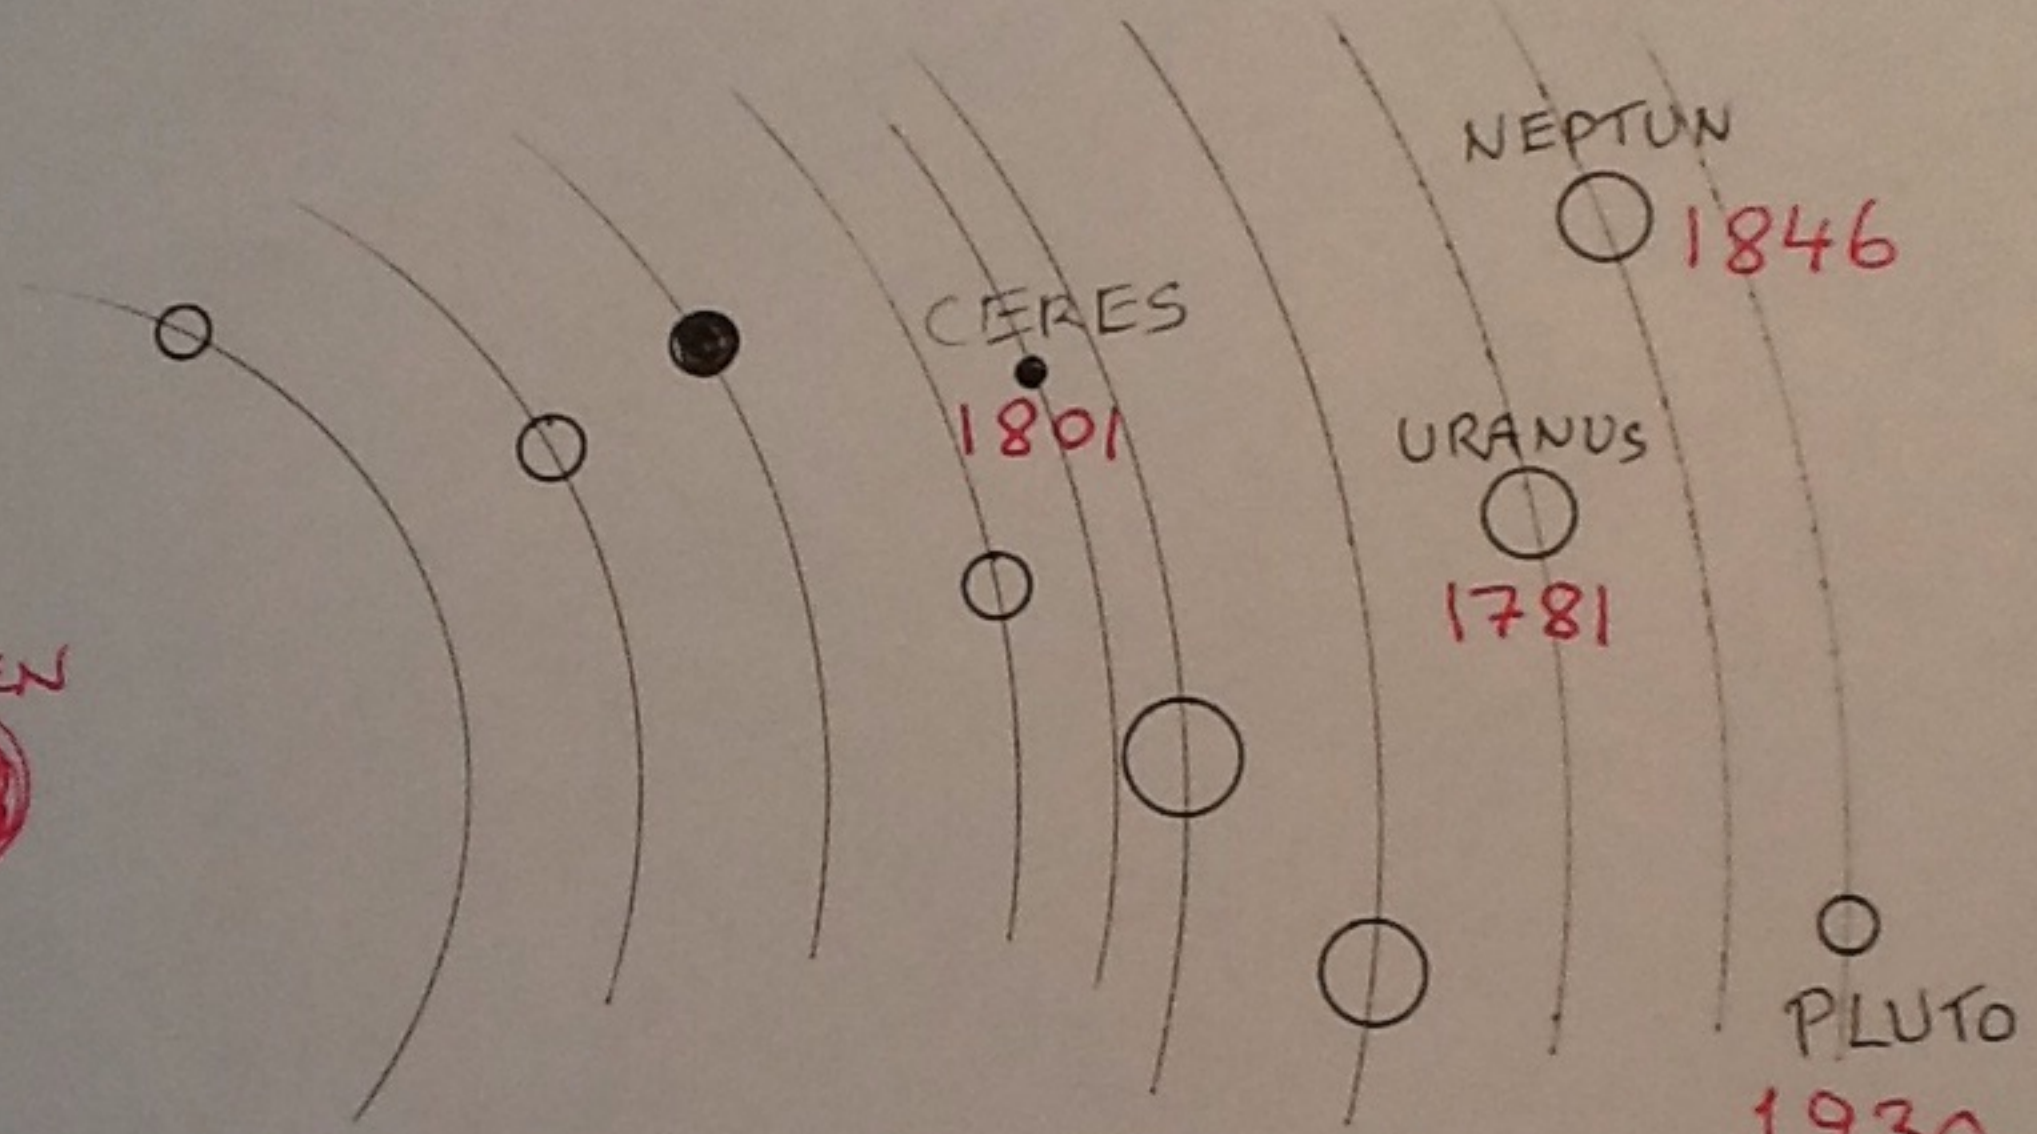 NEPTUN
1846
CERES
1801
URANUS
1781
EN
PLUTO
1930